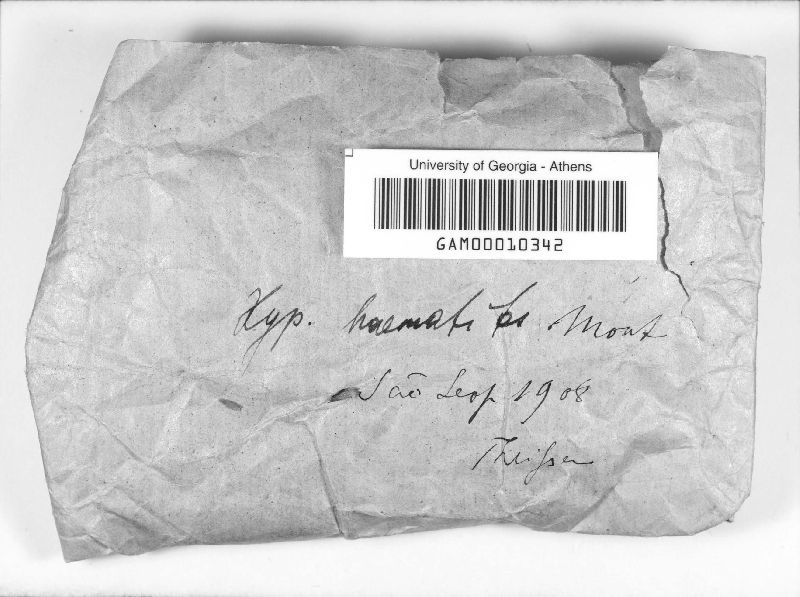 University of Georgia - Athens
GAM00010342
Hyp. haematites Mont
São Leop 1908
Theissen